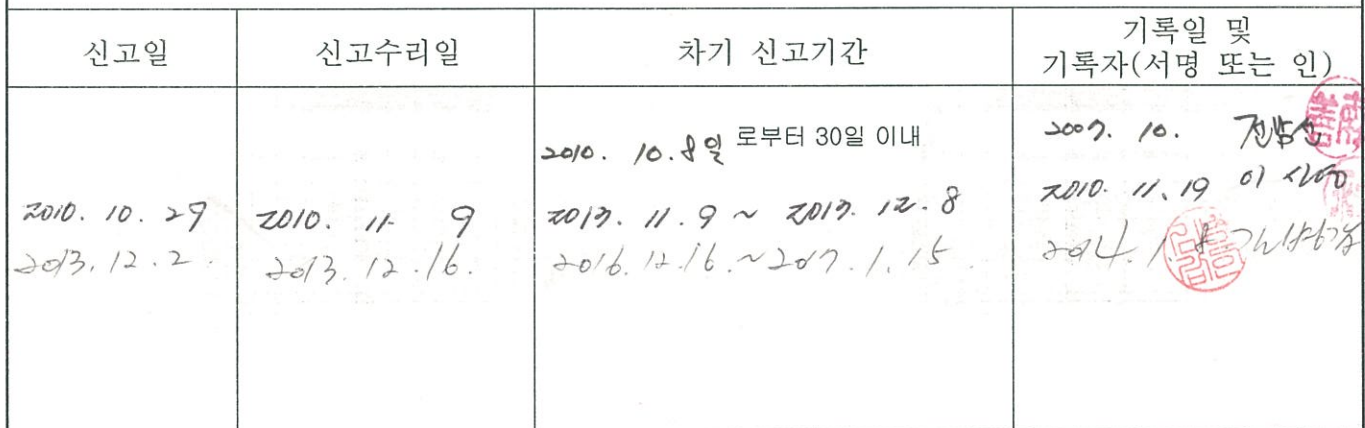 신고일 신고수리일 차기 신고기간 기록일 및
기록자(서명 또는 인)
2010. 10. 8일 로부터 30일 이내 2007. 10.
2010. 10. 29 2010. 11. 9 2013. 11. 9 ~ 2013. 12. 8 2010. 11. 19
2013. 12. 2. 2013. 12. 16. 2016. 12. 16. ~ 2017. 1. 15. 2014. 1. 8